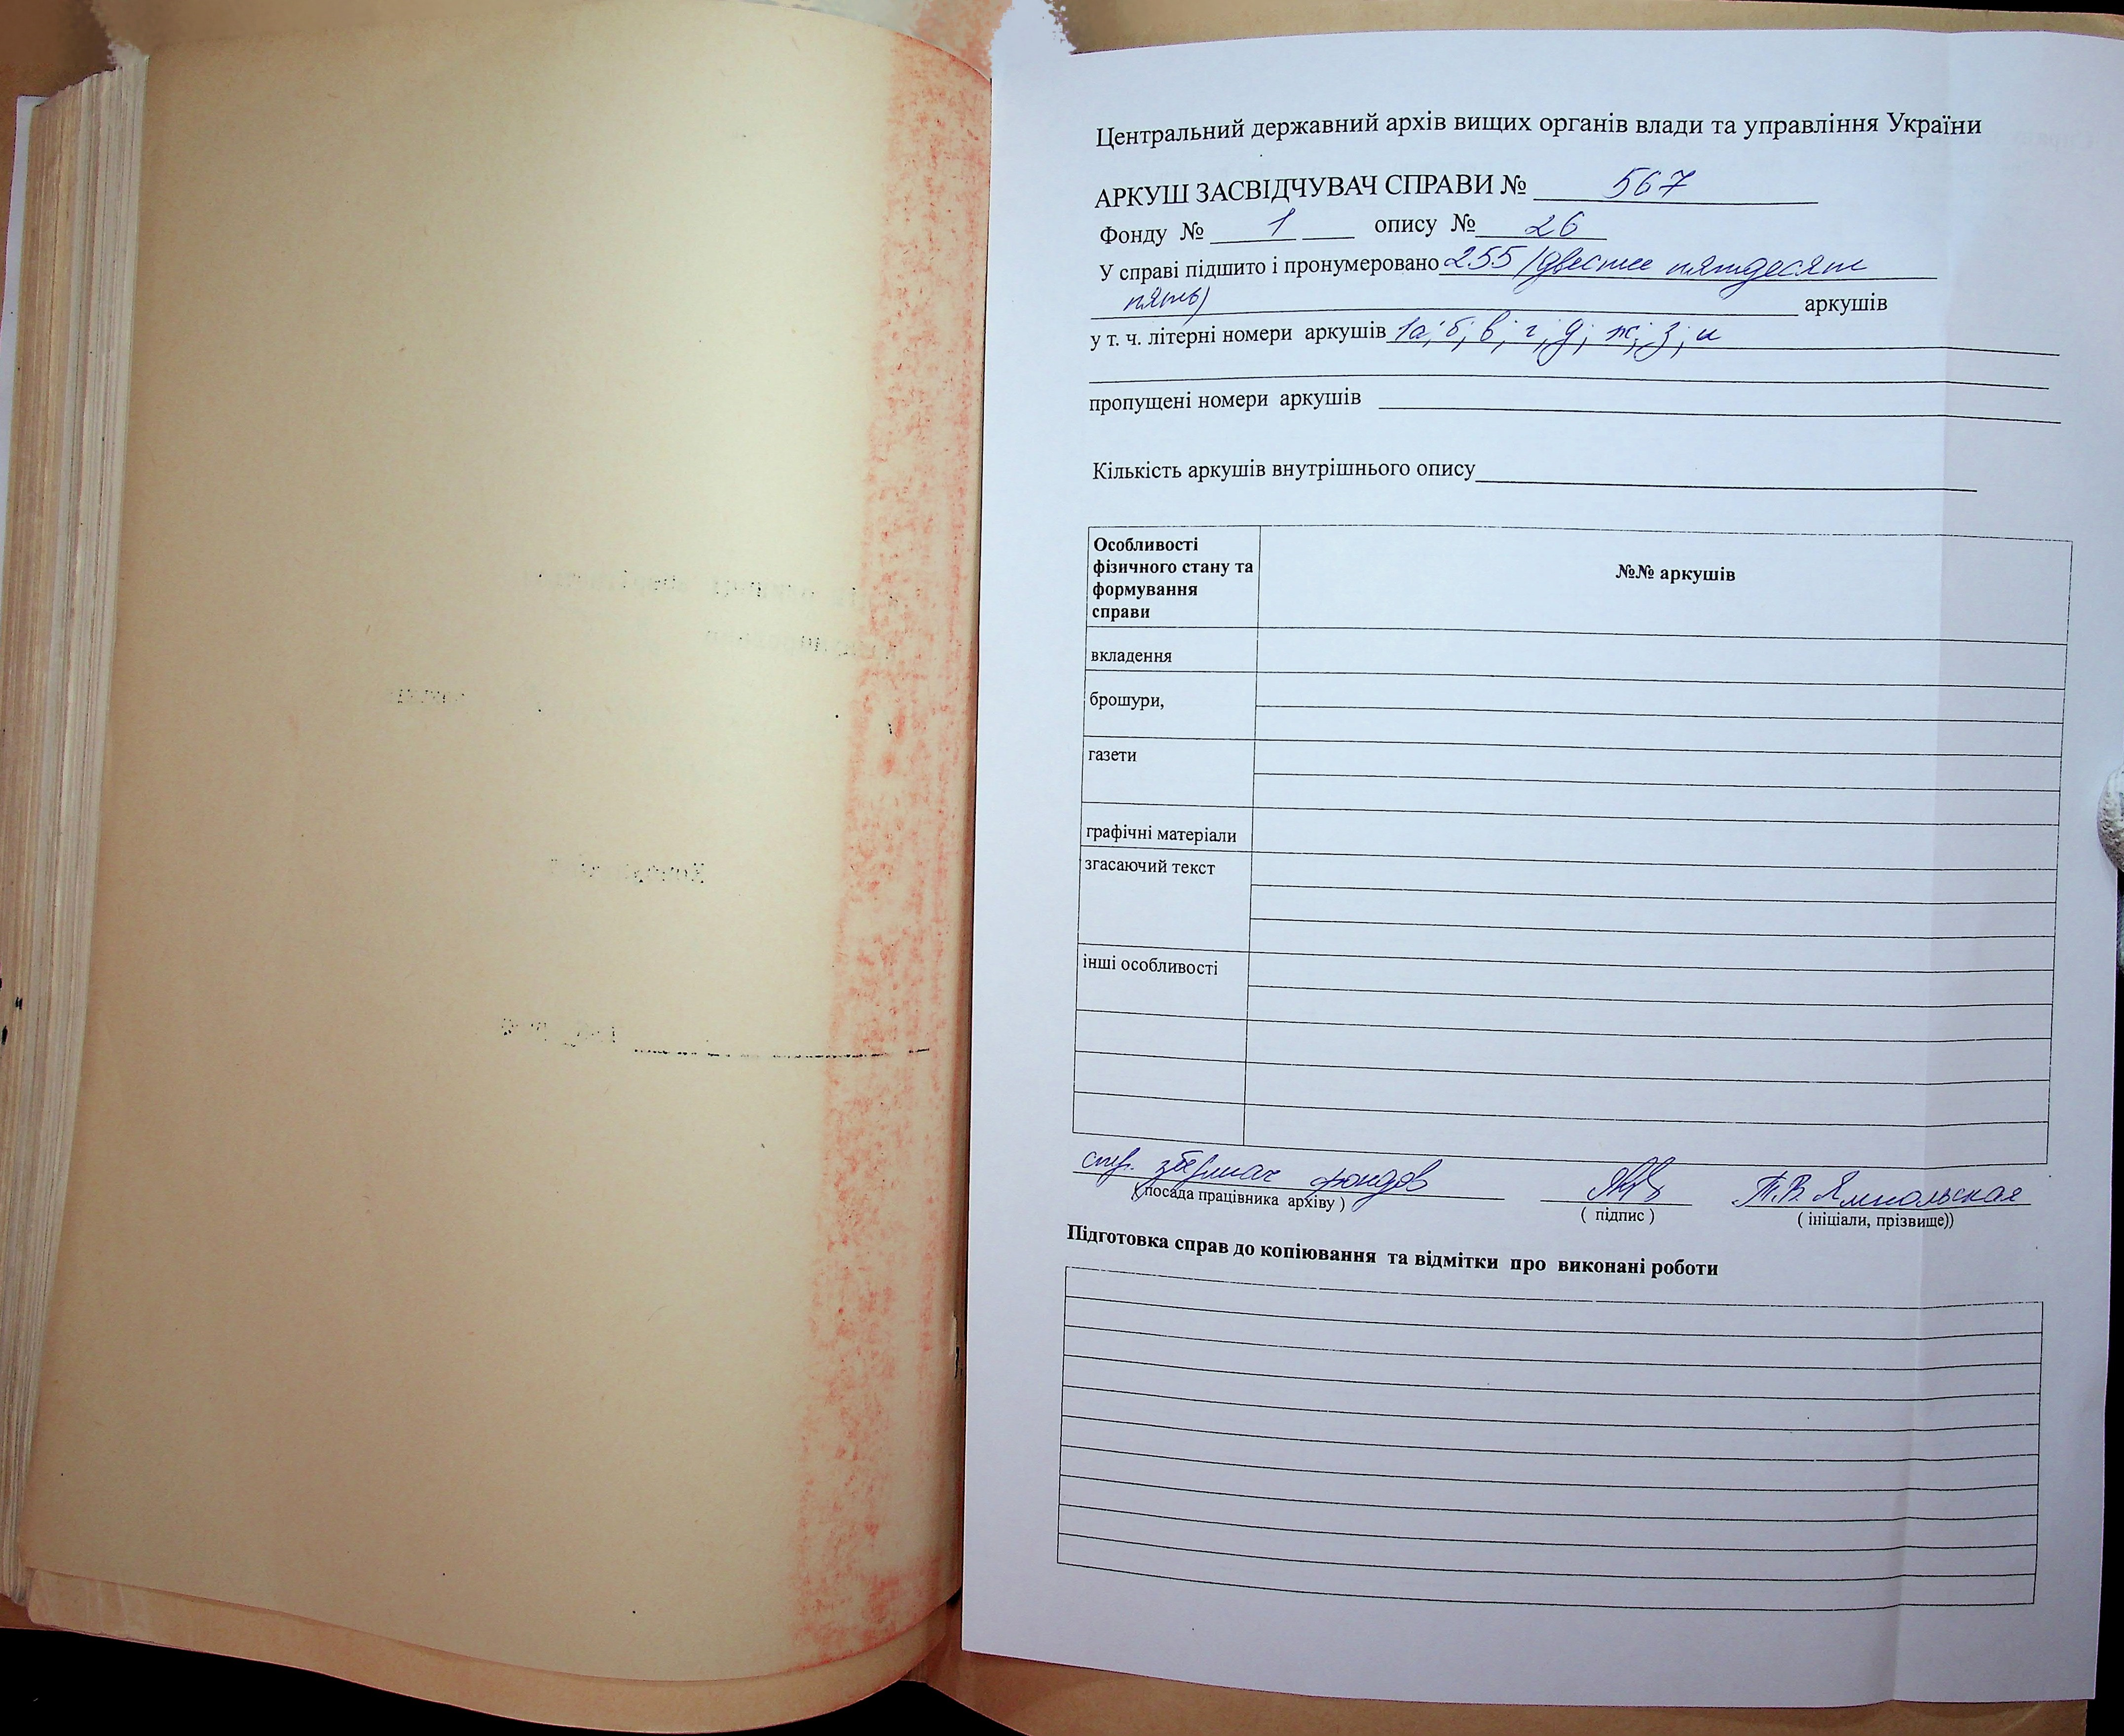 Центральний державний архів вищих органів влади та управління України
АРКУШ ЗАСВІДЧУВАЧ СПРАВИ № 567
Фонду № 1 опису № 26
У справі підшито і пронумеровано 255 (двести пятдесят
пять) аркушів
у т. ч. літерні номери аркушів 1а; б; в; г; д; ж; з; и
пропущені номери аркушів
Кількість аркушів внутрішнього опису
Особливості
фізичного стану та
формування
справи
№№ аркушів
вкладення
брошури,
газети
графічні матеріали
згасаючий текст
інші особливості
фондов Т.В. Ямпольская
( посада працівника архіву ) ( підпис ) ( ініціали, прізвище))
Підготовка справ до копіювання та відмітки про виконані роботи